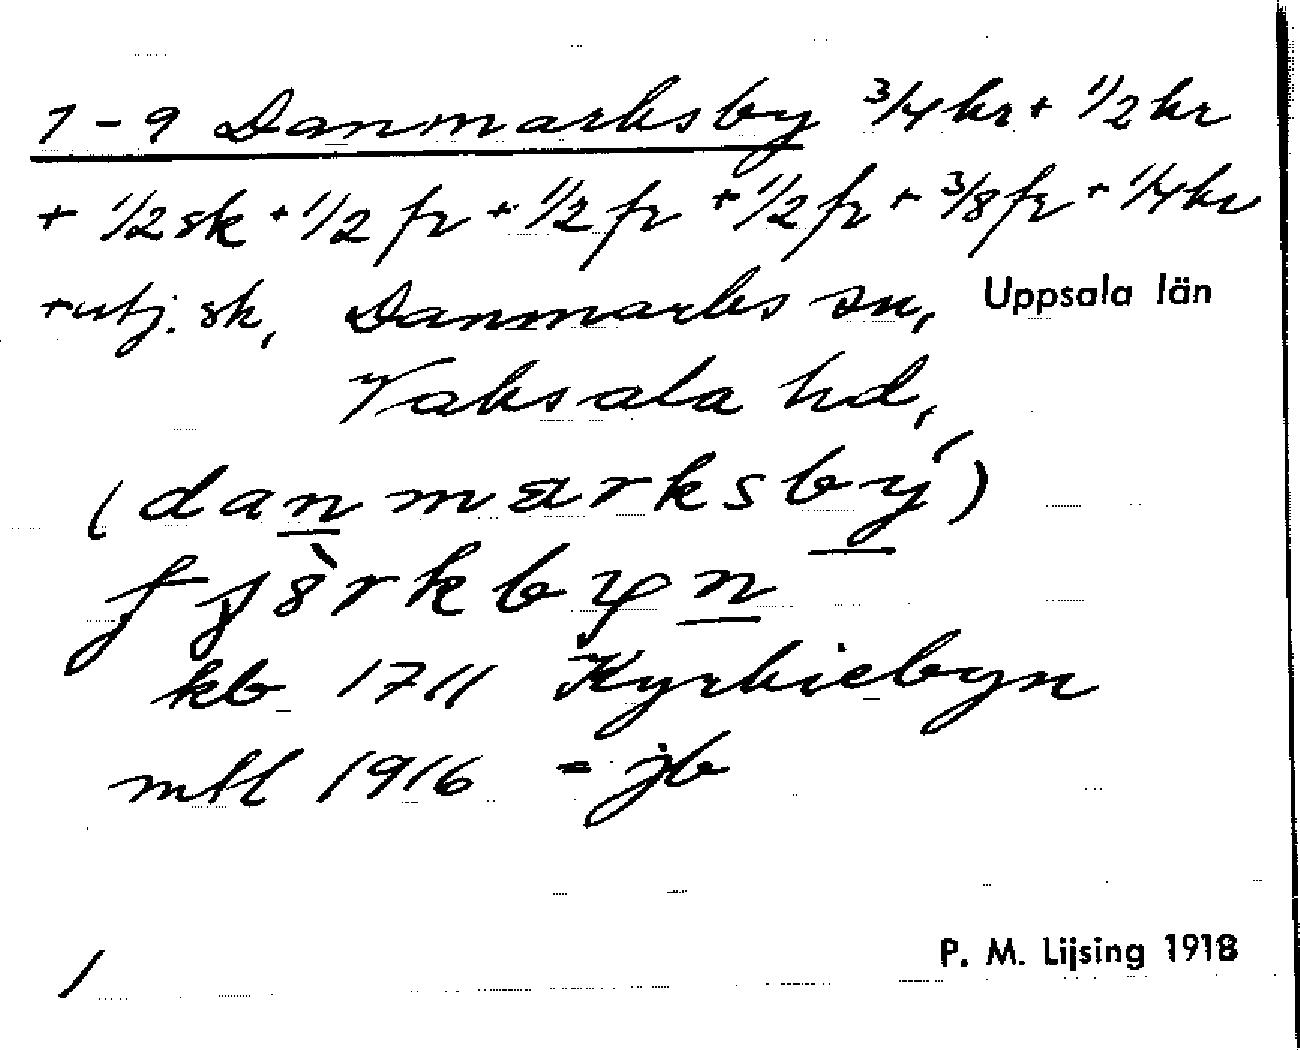 1-9 Danmarksby 3/4 kr + 1/2 kr
+ 1/2 sk + 1/2 fr + 1/2 fr + 1/2 fr + 3/8 fr + 1/4 kr
+ utj. sk, Danmarks sn, Uppsala län
Vaksala hd,
(danmarksby´)
fj8̀rkbyn
kb 1711 Kyrkiebyn
mtl 1916 = jb
1
P. M. Lijsing 1918